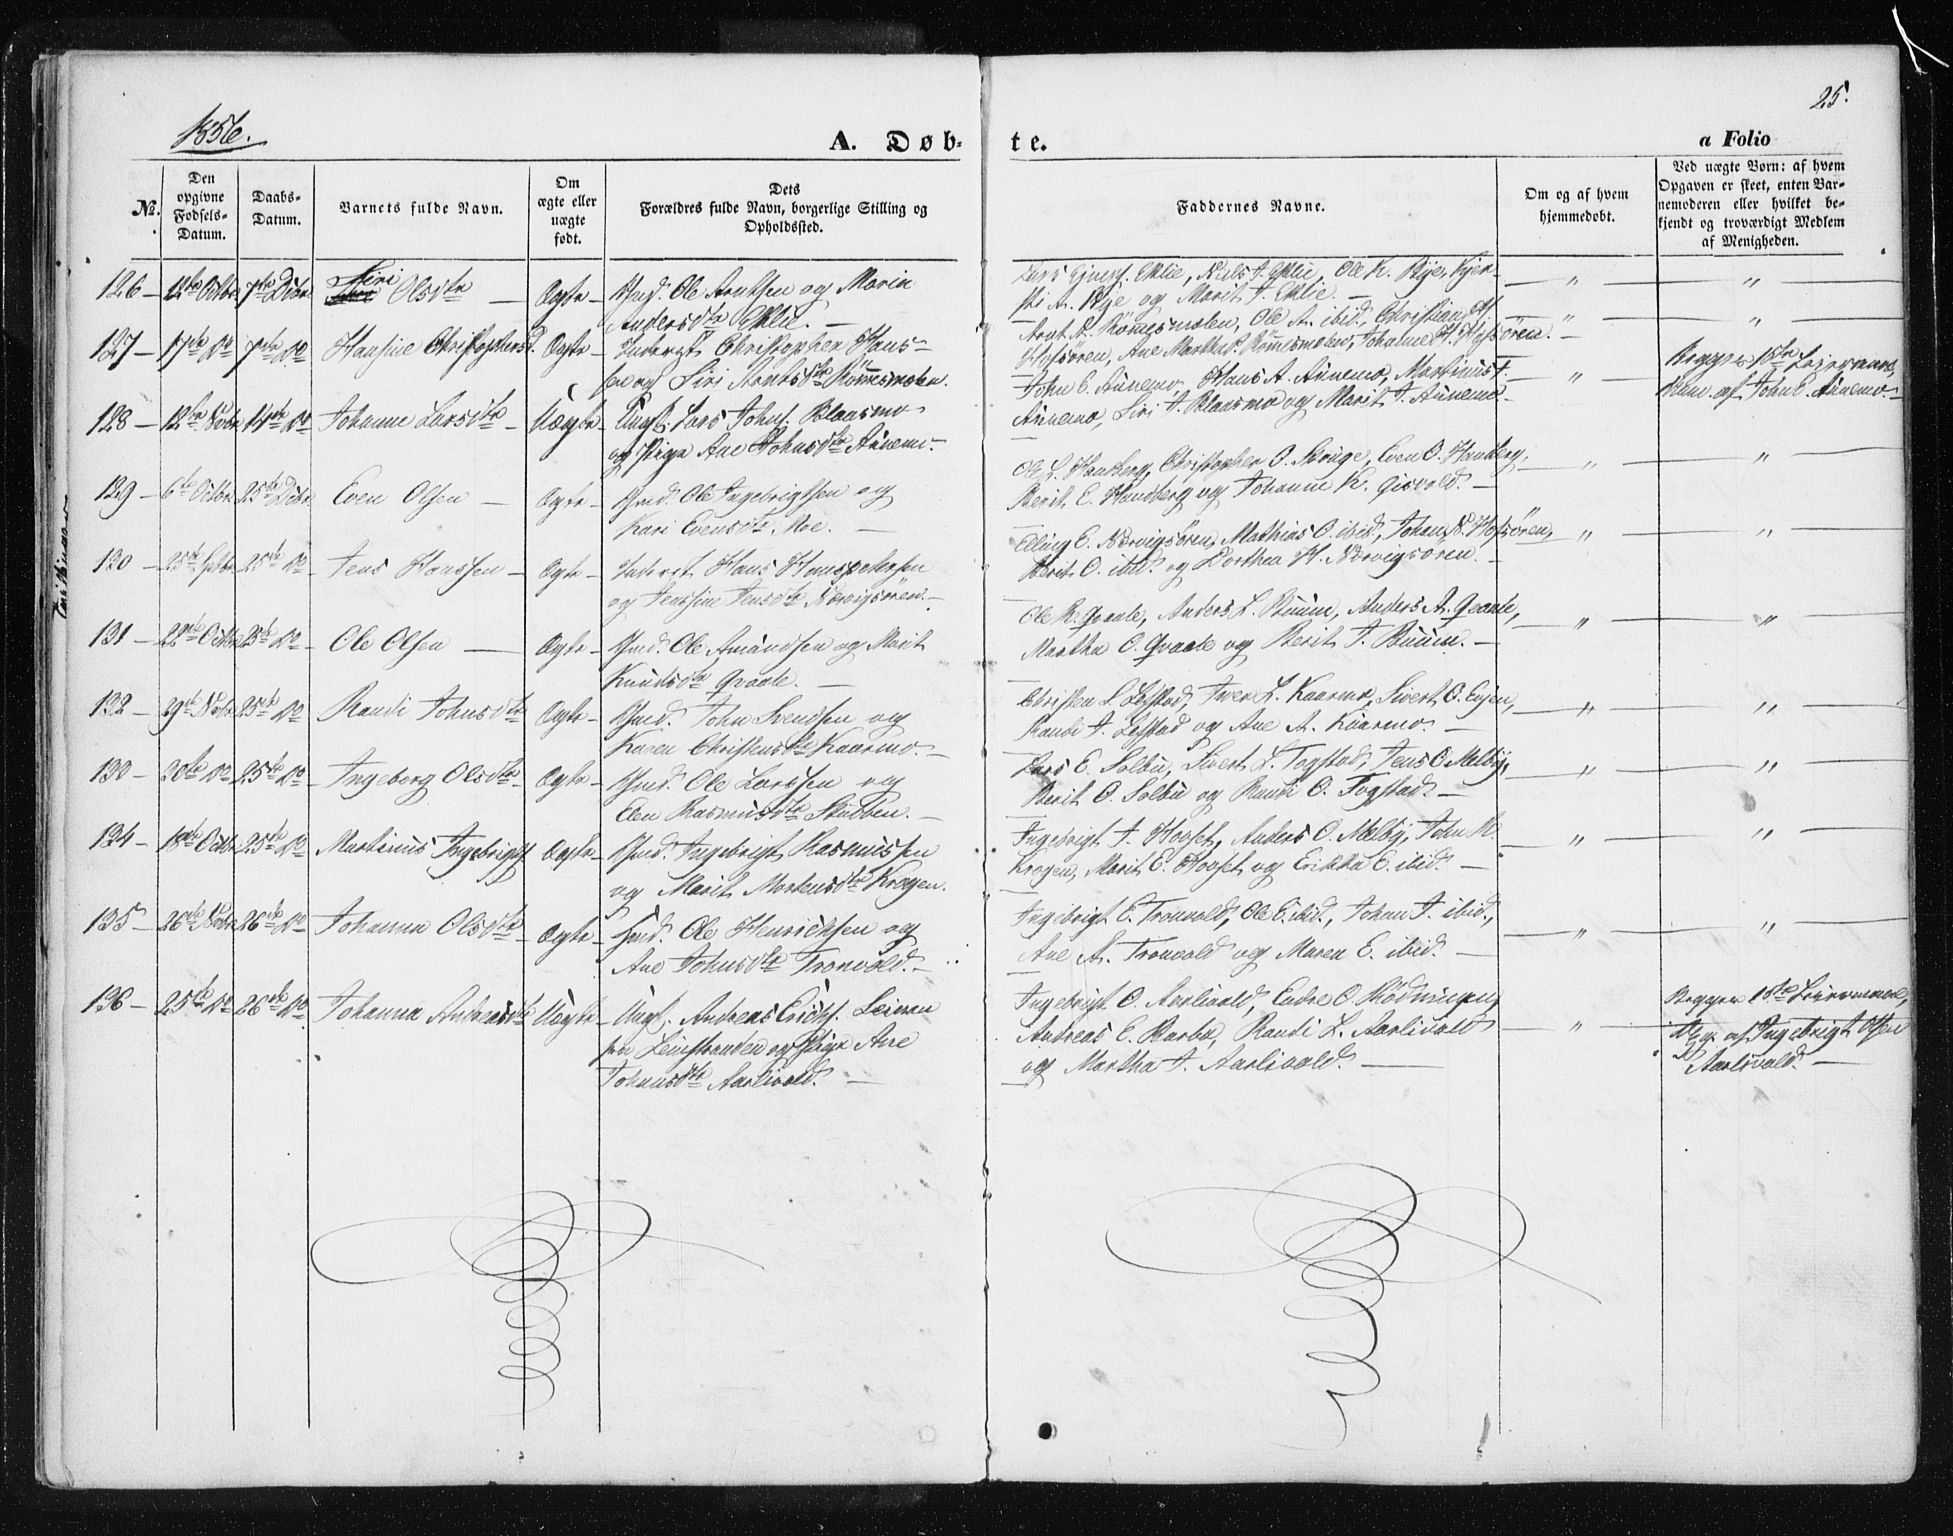 1856.
25.
A. Døb-
te.
a Folio
No.
Den opgivne Fødsels-Datum.
Daabs-Datum.
Barnets fulde Navn.
Om ægte eller uægte født.
Dets Forældres fulde Navn, borgerlige Stilling og Opholdssted.
Faddernes Navne.
Om og af hvem hjemmedøbt.
Ved uægte Børn: af hvem Opgaven er skeet, enten Barnemoderen eller hvilket bekjendt og troværdigt Medlem af Menigheden.
126 — 12te Octbr 7de Decbr Siri Olsdtr — Ægte — Gmd. Ole Arntsen og Marin
Andersdtr Eklie. —
Lars Ejvens. Eklie, Niels J. Eklie, Ole K. Bye, Kjer-
sti A. Bye og Marit J. Eklie. — " "
127 — 17de Do 7de Do Hansine Christophersd. Ægte — Inderst Christopher Hans-
sen og Siri Arntsdtr Römmesmoen.
Arnt A. Römesmoen, Ole A. ibid., Christian H.
Hofsören, Ane Martha P. Römesmoen, Johanne H. Hofsören. — " "
128 — 12te Novbr 14de Do Johanne Larsdtr — Uægte — Ungk. Lars Johns. Blaasmo
og Pige Ane Johnsdtr Aunemo. —
John E. Aunemo, Hans A. Aunemo, Martinus J.
Aunemo, Siri J. Blaasmo og Marit J. Aunemo. — "
Begges 1ste Leiermaal,
Anm. af John E. Aunemo. —
129 — 6te Octbr 25de Decbr Even Olsen — Ægte — Gmd. Ole Ingebrigtsen og
Kari Evensdtr Moe. —
Ole L. Handberg, Christopher O. Skruge, Even O. Handberg,
Berit E. Handberg og Johanne K. Gisvold. — " "
130 — 25de Septbr 25de Do Jens Hanssen — Ægte — Inderst Hans Hanspetersen
og Jensine Jensdtr Norvigsören. —
Elling E. Norvigsören, Mathias O. ibid., Johan N. Hofsören,
Berit O. ibid. og Dorthea H. Norvigsören. — " "
131 — 22de Octbr 25de Do Ole Olsen — Ægte — Gmd. Ole Amundsen og Marit
Knudsdtr Qvaale. —
Ole K. Qvaale, Anders L. Buum, Anders A. Qvaale,
Martha O. Qvaale og Berit J. Buum. — " "
132 — 29de Novbr 25de Do Randi Johnsdtr Ægte — Gmd. John Svendsen og
Karen Christensdtr Kaarmo. —
Christen S. Lefstad, Iver L. Kaarmo, Sivert O. Engen,
Randi J. Lefstad og Ane A. Kaarmo. — " "
133 — 20de Do 25de Do Ingeborg Olsdtr — Ægte — Gmd. Ole Larssen og
Elen Rasmusdtr Stubben. —
Lars E. Solbu, Sivert L. Togstad, Jens O. Melby,
Berit O. Solbu og Randi O. Togstad. — " "
134 — 18de Octbr 25de Do Martinus Ingebrigts. Ægte — Gmd. Ingebrigt Rasmussen
og Marit Mortensdtr Krogen.
Ingebrigt J. Hovset, Anders O. Melby, John R.
Krogen, Marit E. Hovset og Erikka E. ibid. — " "
135 — 26de Novbr 26de Do Johanna Olsdtr — Ægte — Gmd. Ole Henrichsen og
Ane Johnsdtr Tronvold. —
Ingebrigt E. Tronvold, Ole E. ibid., Johan J. ibid.,
Ane A. Tronvold og Maren E. ibid. — " "
136 — 25de Do 26de Do Johanna Andreasdtr Uægte — Ungk. Andreas Erichs. Leiren
fra Leinstranden og Pige Ane
Johnsdtr Aarlivold. —
Ingebrigt O. Aarlivold, Endre O. Rödningen,
Andreas E. Barbo, Randi L. Aarlivold
og Martha J. Aarlivold. — "
Begges 1ste Leiermaal,
Opg. af Ingebrigt Olsen
Aarlivold. —